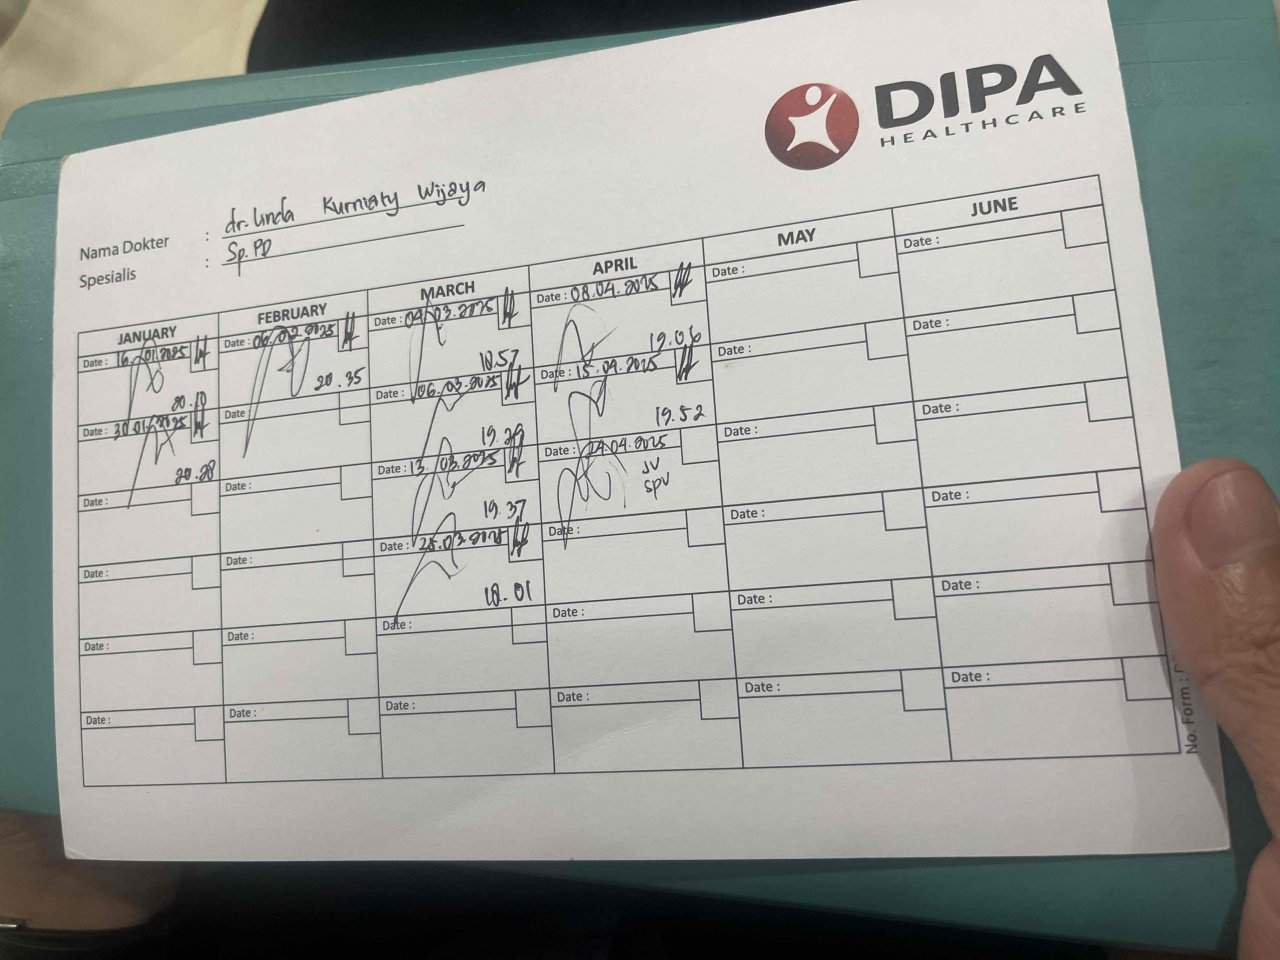 DIPA
HEALTHCARE
Nama Dokter : dr. Linda Kurniaty Wijaya
Spesialis : Sp.PD
JANUARY FEBRUARY MARCH APRIL MAY JUNE
Date : 16.01.2025 Date : 06.02.2025 Date : 04.03.2025 Date : 08.04.2025 Date : Date :
20.10 20.35 18.57 19.06
Date : 30.01.2025 Date : Date : 06.03.2025 Date : 15.04.2025 Date : Date :
20.28 19.29 19.52
Date : Date : Date : 13.03.2025 Date : 24.04.2025 Date : Date :
19.37 JV
SPV
Date : Date : Date : 25.03.2025 Date : Date : Date :
18.01
Date : Date : Date : Date : Date : Date :
Date : Date : Date : Date : Date : Date :
No. Form :